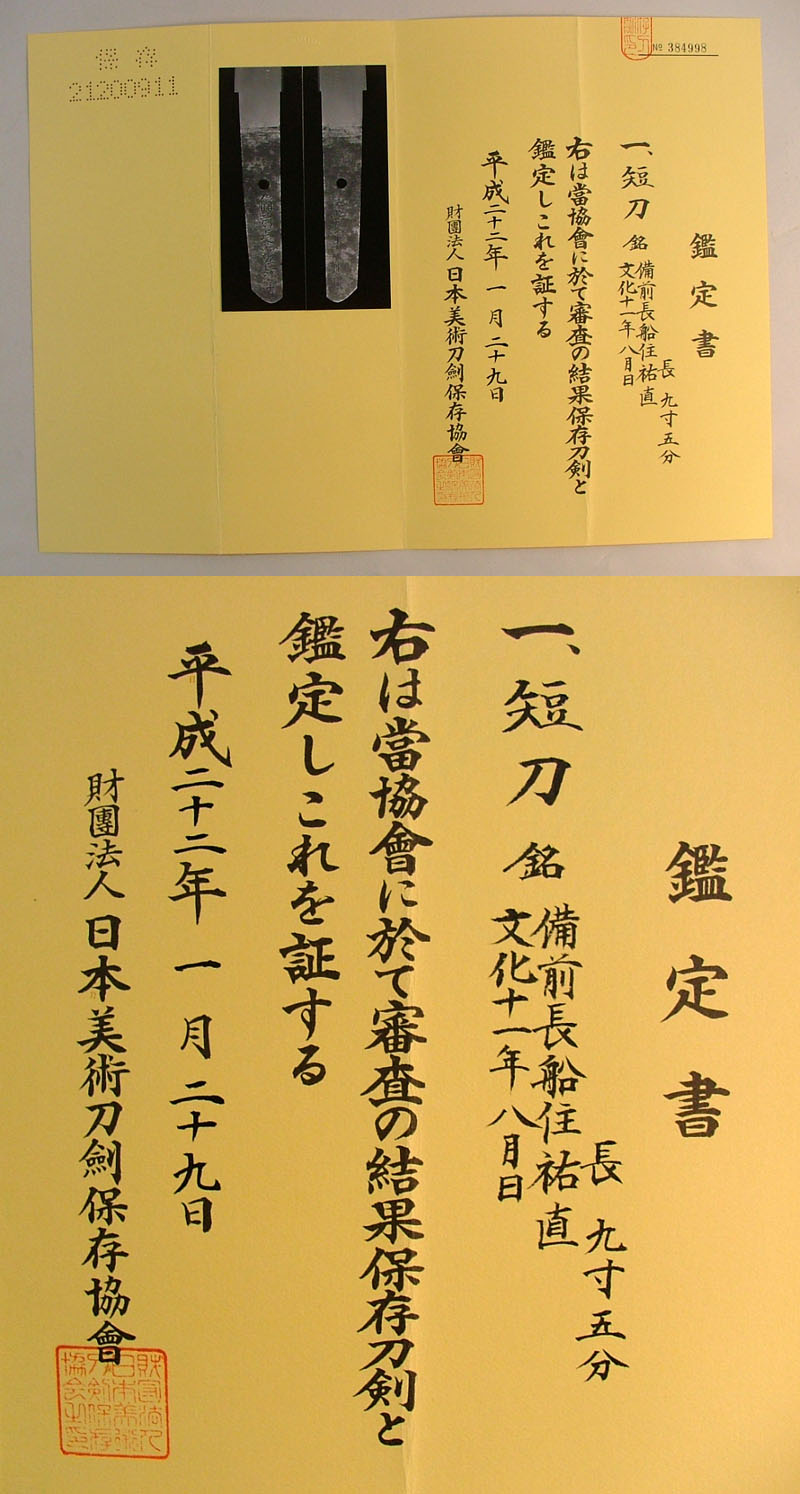 保存
21200911
№ 384998
鑑定書
長 九寸五分
一、短刀 銘 備前長船住祐直
文化十一年八月日
右は當協會に於て審査の結果保存刀剣と
鑑定しこれを証する
平成二十二年 一月 二十九日
財團法人 日本美術刀劍保存協會
鑑定書
長 九寸五分
一、短刀 銘 備前長船住祐直
文化十一年八月日
右は當協會に於て審査の結果保存刀剣と
鑑定しこれを証する
平成二十二年 一月 二十九日
財團法人 日本美術刀劍保存協會